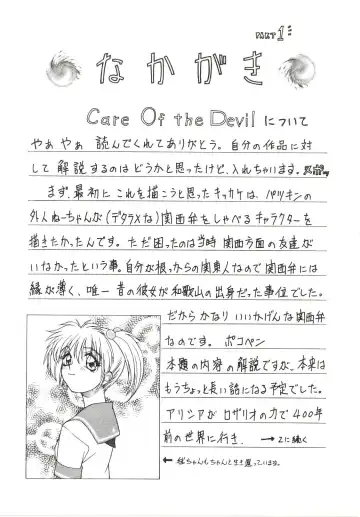 PART 1:
なかがき
Care Of the Devil について
やぁ やぁ 読んでくれてありがとう。自分の作品に対
して解説するのはどうかと思ったけど、入れちゃいます。
まず、最初に これを描こうと思ったキッカケは、パツキンの
外人ねーちゃんが(デタラメな)関西弁をしゃべるキャラクターを
描きたかったんです。ただ困ったのは当時 関西方面の友達が
いなかったという事。自分が根っからの関東人なので関西弁には
縁が薄く、唯一 昔の彼女が和歌山の出身だった事位でした。
だから かなり いいかげんな関西弁
なのです。 ポコペン
本題の内容の解説ですが、本来は
もうちょっと長い話になる予定でした。
アリシアが ロザリオの力で400年
前の世界に行き、 →2に続く
← 桂ちゃんもちゃんと生き還っています。